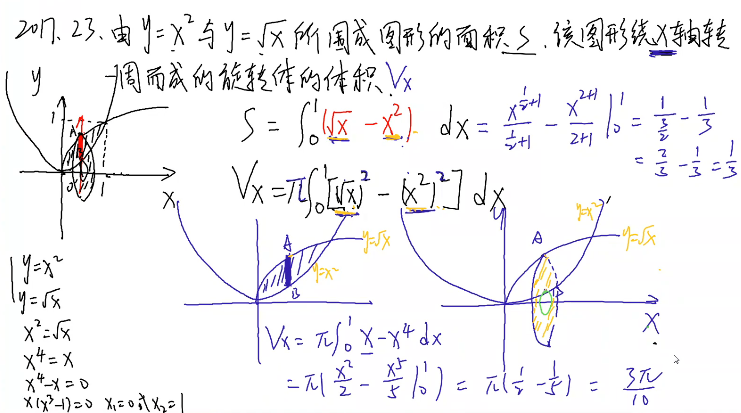 2017.23.由y=x²与y=√x所围成图形的面积S.该图形绕X轴转
一周而成的旋转体的体积Vx
y
1
A
0
1
X
S=∫₀¹(√x-x²)dx=x^(1/2+1)/(1/2+1)-x^(2+1)/(2+1)|₀¹=1/(3/2)-1/3
=2/3-1/3=1/3
Vx=π∫₀¹[(√x)²-(x²)²]dx
A
B
y=√x
y=x²
y
A
B
y=x²
y=√x
X
{y=x²
y=√x
x²=√x
x⁴=x
x⁴-x=0
x(x³-1)=0 x₁=0或x₂=1
Vx=π∫₀¹x-x⁴dx
=π(x²/2-x⁵/5|₀¹)=π(1/2-1/5)=3π/10